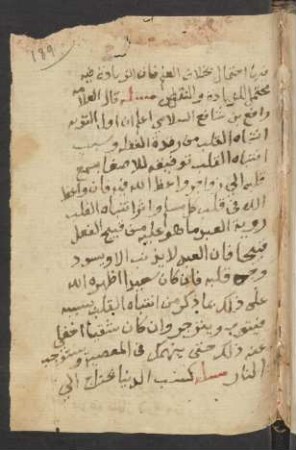 189
فيها احتمال بخلاف العلم فان الزيادة فيه
محتمل للزيادة والنقص مسله قال العلامه
رافع بن شافع السلامي اعلم ان اول التوبه
انتباه القلب من رقدة الغفله وسبب
انتباه القلب توفيقه للاصغا بسمع
قلبه الي زواجر واعظ الله فيه فان واعظ
الله في قلب كل مسلم واثر انتباه القلب
روية العبد ما هو عليه من قبيح الفعل
قبيحا فان العبد لا يذنب الا ويسود
وجه قلبه فان كان سعيدا اظهره الله
على ذلك بما ذكر من انتباه القلب بسببه
فيتوب وينزجر وان كان شقيا اخفي
عنه ذلك حتى ينهمك في المعصيه ويستوجب
النار مسله كتب الدنيا تحتاج الي